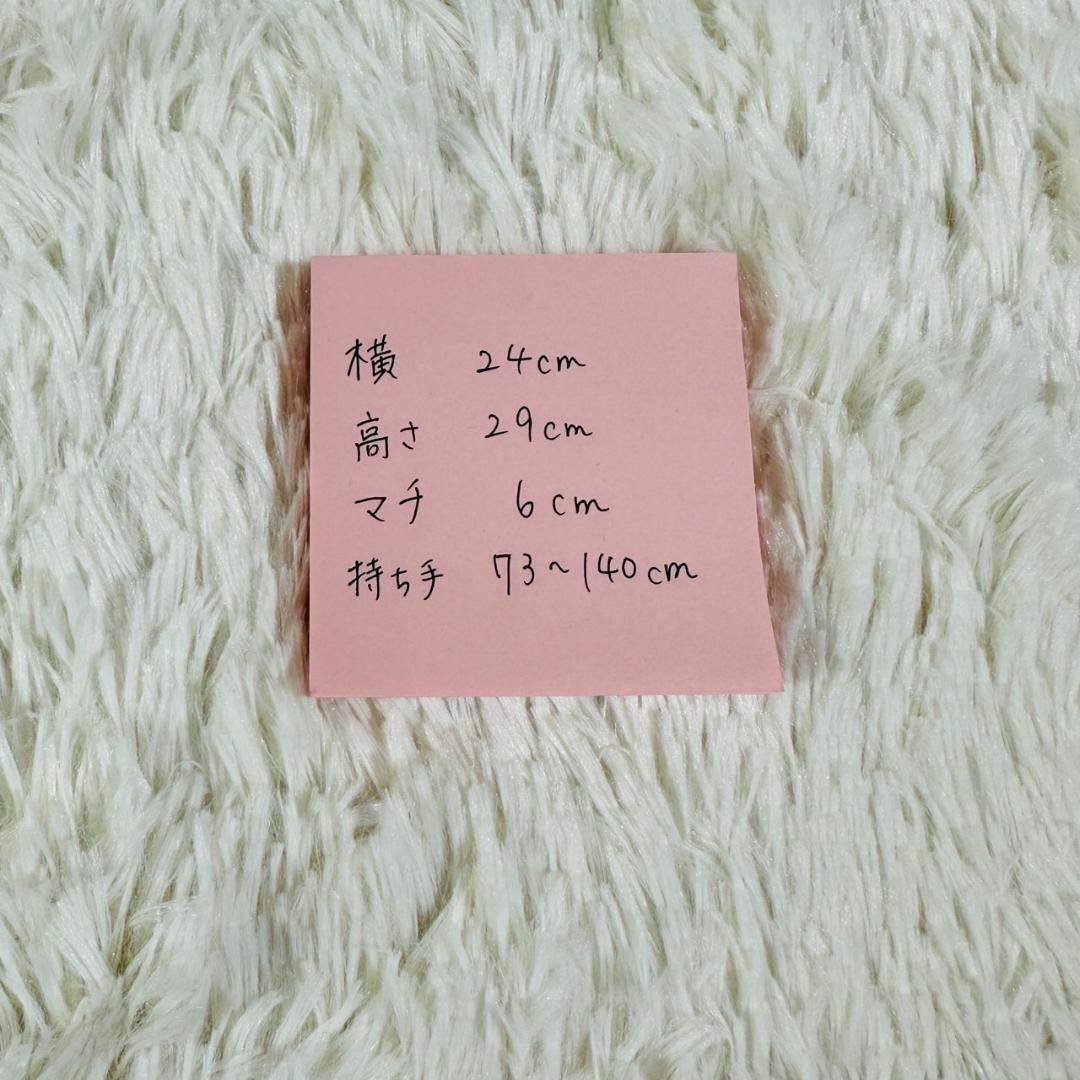 横 24cm
高さ 29cm
マチ 6cm
持ち手 73~140cm